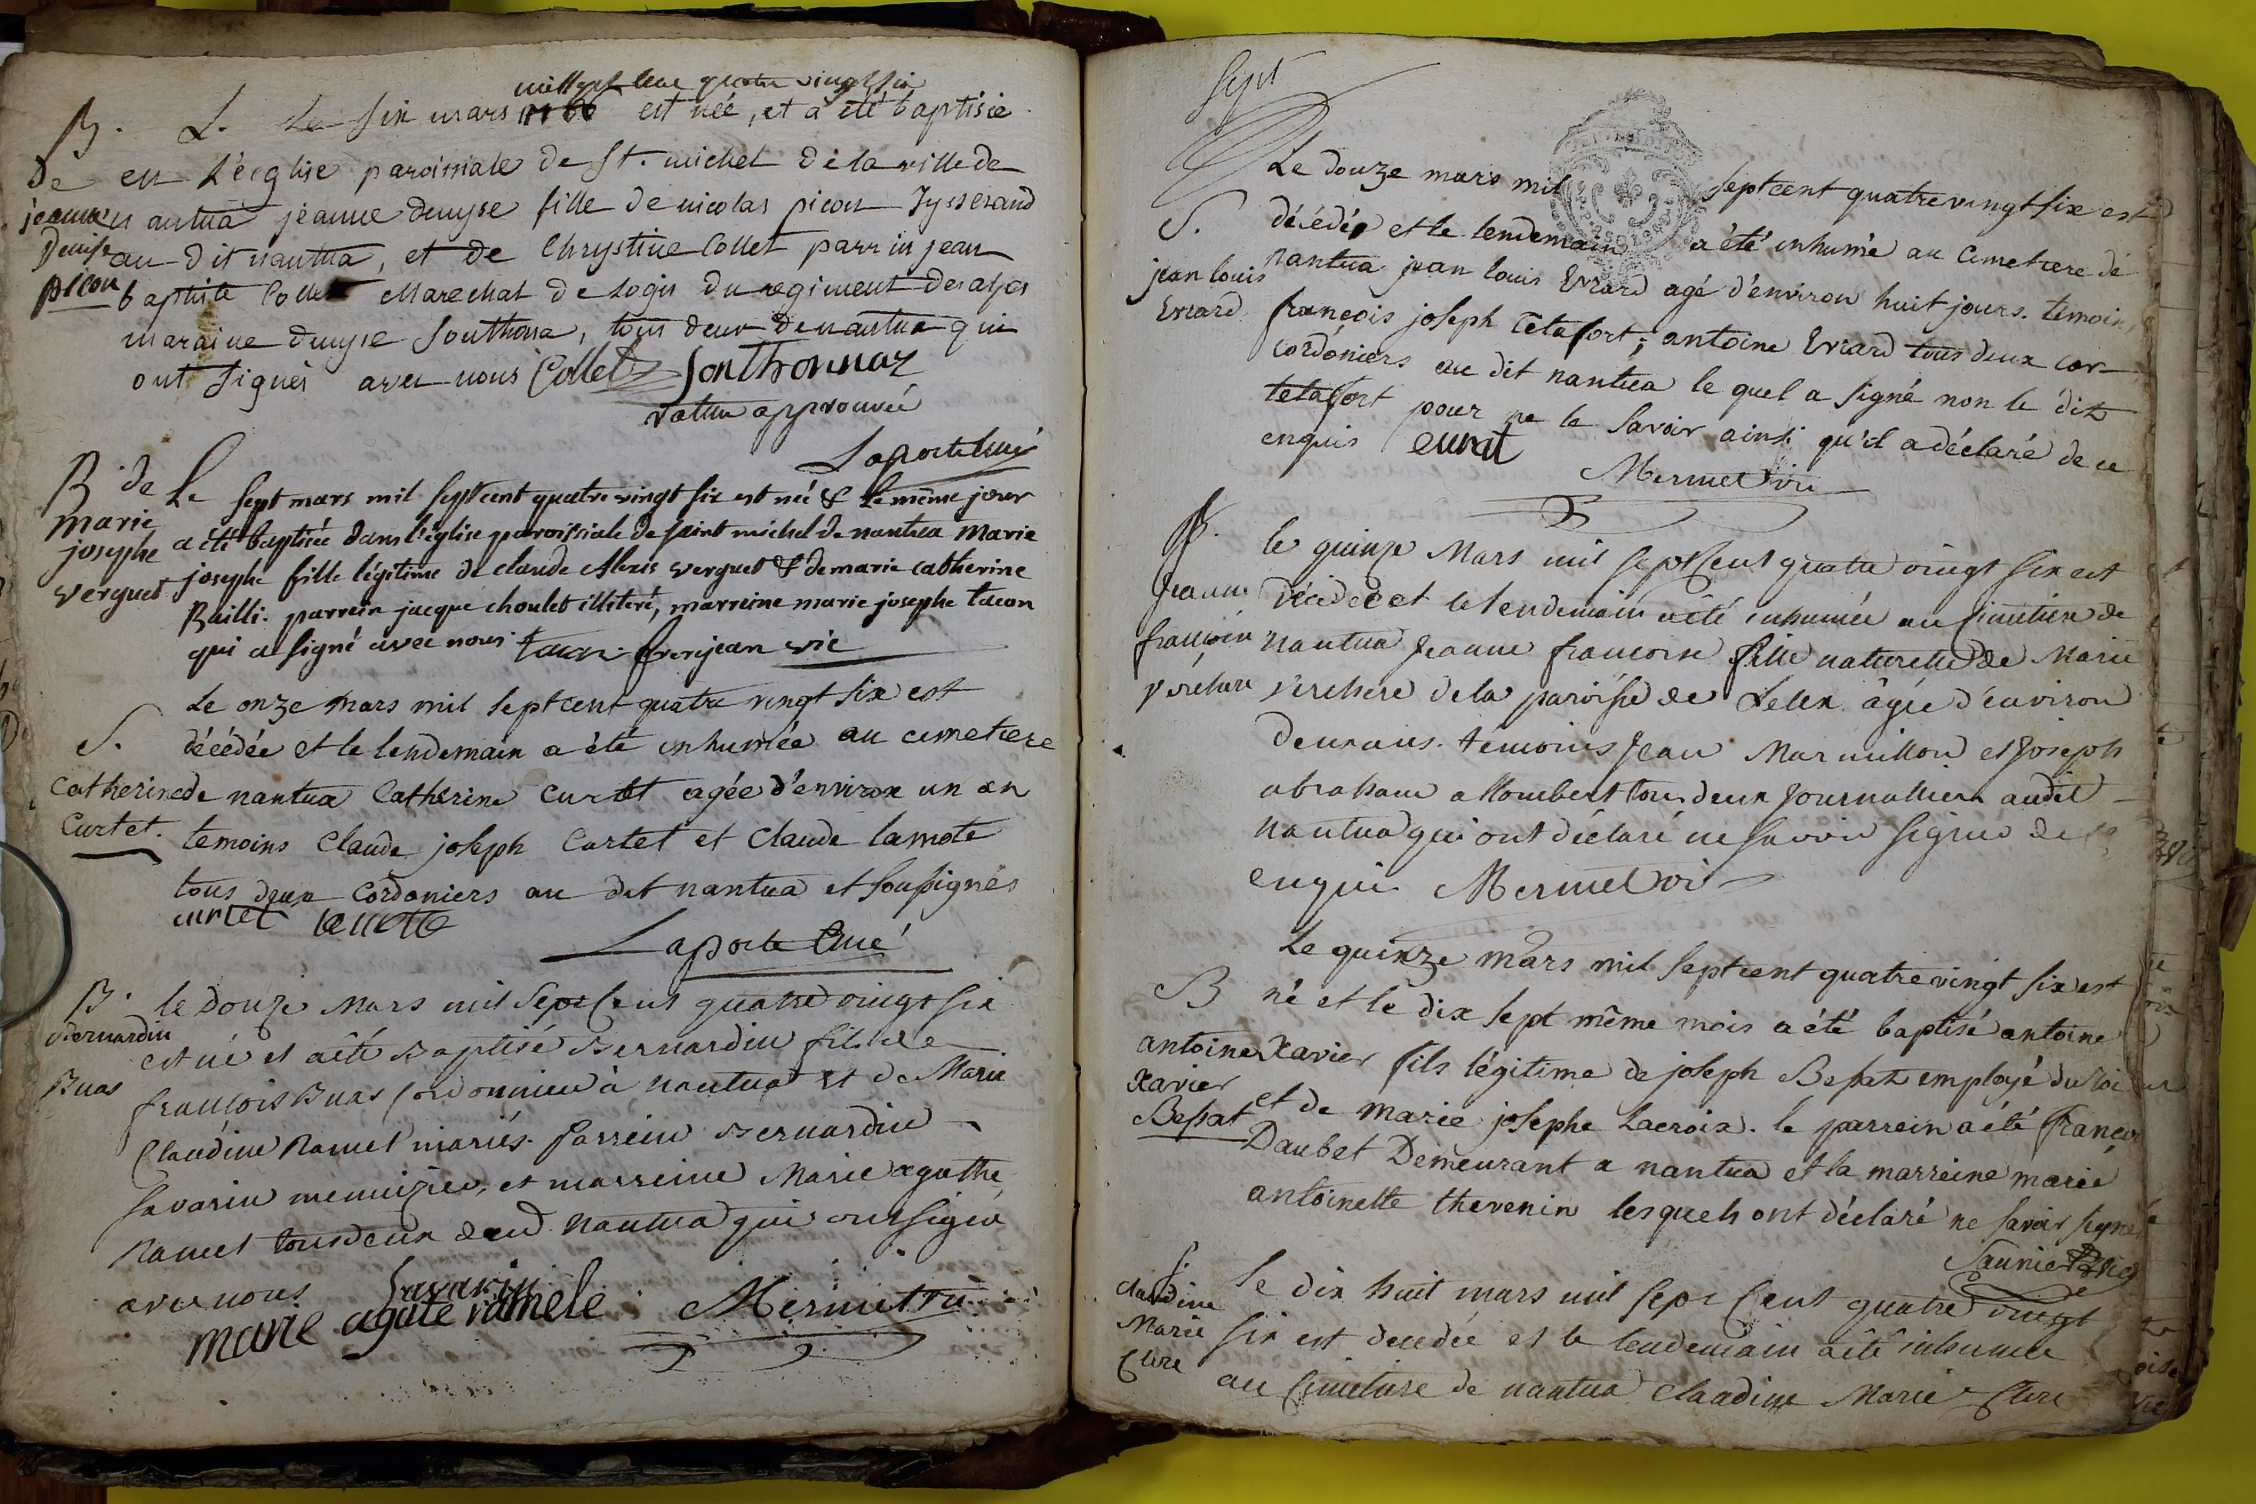 mille sept cent quatre vingt six
B. L. Le six mars 1786 est née, et a été baptisée
de en l'eéglise paroissiale de St. michel de la ville de
jeanne nantua jeanne denyse fille de nicolas picon Tysserand
Denise au dit nantua, et de Chrystine Collet parrin jean
picon baptiste Collet Marechal de logis du regiment des
maraine denyse Southona, tous deux de nantua qui
ont signés avec nous Collet Sonthonnax
rature approuvée
Laporte Curé
B. de Le sept mars mil sept cent quatre vingt six est née & le même jour
marie a été baptisée dans l'église paroissiale de saint michel de nantua Marie
josephe josephe fille légitime de claude Alexis verguet & de marie catherine
verguet Bailli. parrein jacque choulet illiteré, marreine marie josephe tacon
qui a signé avec nous. tacon. frerejean vic
Le onze mars mil sept cent quatre vingt six est
S. décédée et le lendemain a été inhumée au cimetiere
Catherine de nantua Catherine Curtet agée d'environ un an
Curtet. temoins Claude joseph Curtet et Claude lamote
tous deux Cordoniers au dit nantua et soussignés
curtet lamotte
Laporte Curé
B. le Douze Mars mil Sept Cent quatre vingt six
Bernardin est né et a été Baptisé Bernardin fils de
Buas françois Buas Cordonnier à Nantua et de Marie
Claudine Ramel mariés. Parrein Bernardin
Savarin menuizier, et marreine Marie agathe
Ramel tous deux dud. Nantua qui ont signé
avec nous Savarin
marie agate ramele Mermet vic
Sept
Le douze mars mil sept cent quatre vingt six est
S. décédé et le lendemain a été inhumé au Cimetiere de
jean louis nantua jean louis Evrard agé d'environ huit jours. temoins,
Evrard françois joseph Tetafort; antoine Evrard tous deux cor-
cordoniers au dit nantua le quel a signé non le dit
tetafort pour ne le savoir ainsi qu'il a déclaré de ce
enquis
Mermet vic
S. le quinze Mars mil sept Cent quatre vingt six est
Jeanne décédée et le lendemain a été inhumée au Cimetiere de
françoise nantua Jeanne françoise fille naturelle de Marie
verchere verchere de la paroisse de Lelex âgée d'environ
deux ans. témoins Jean Marmillon et Joseph
abraham allombert tous deux Journalliers audit
Nantua qui ont déclaré ne savoir signer de ce
enquis Mermet vic
Le quinze mars mil sept cent quatre vingt six est
B né et le dix sept même mois a été baptisé antoine
antoine Xavier fils légitime de joseph Bessat employé du Roi
Xavier et de marie josephe Lacroix. le parrein a été françois
Bessat Daubet Demeurant a nantua et la marreine marie
antoinette thevenin lesquels ont déclaré ne savoir signer
Saunier vic
S. Le dix huit mars mil sept Cent quatre vingt
Claudine six est décédée et le lendemain a été inhumée
Marie au Cimetiere de nantua Claudine Marie Clere
Clere